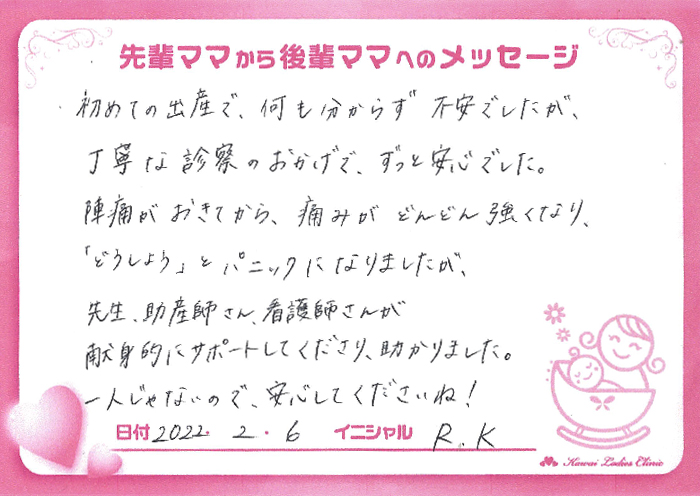 先輩ママから後輩ママへのメッセージ
初めての出産で、何も分からず不安でしたが、
丁寧な診察のおかげで、ずっと安心でした。
陣痛がおきてから、痛みがどんどん強くなり、
「どうしよう」とパニックになりましたが、
先生、助産師さん、看護師さんが
献身的にサポートしてくださり、助かりました。
一人じゃないので、安心してくださいね!
日付 2022. 2. 6 イニシャル R.K
Kawai Ladies Clinic